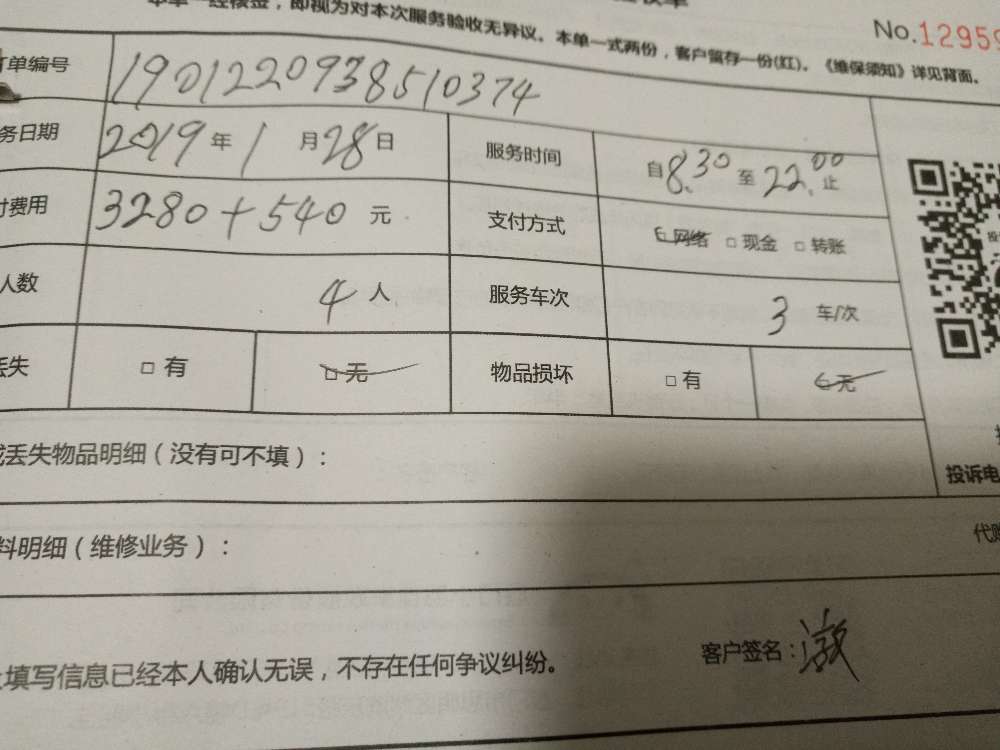 即视为对本次服务验收无异议。本单一式两份，客户留存一份(红)。《维保须知》详见背面。
No.12959
单编号 190122093851037​4
务日期 2019年1月28日 服务时间 自8:30至22:00止
费用 3280+540元 支付方式 □网络 □现金 □转账
人数 4人 服务车次 3车/次
丢失 □有 □无 物品损坏 □有 □无
丢失物品明细（没有可不填）：
投诉电
料明细（维修业务）：
代购
填写信息已经本人确认无误，不存在任何争议纠纷。
客户签名：